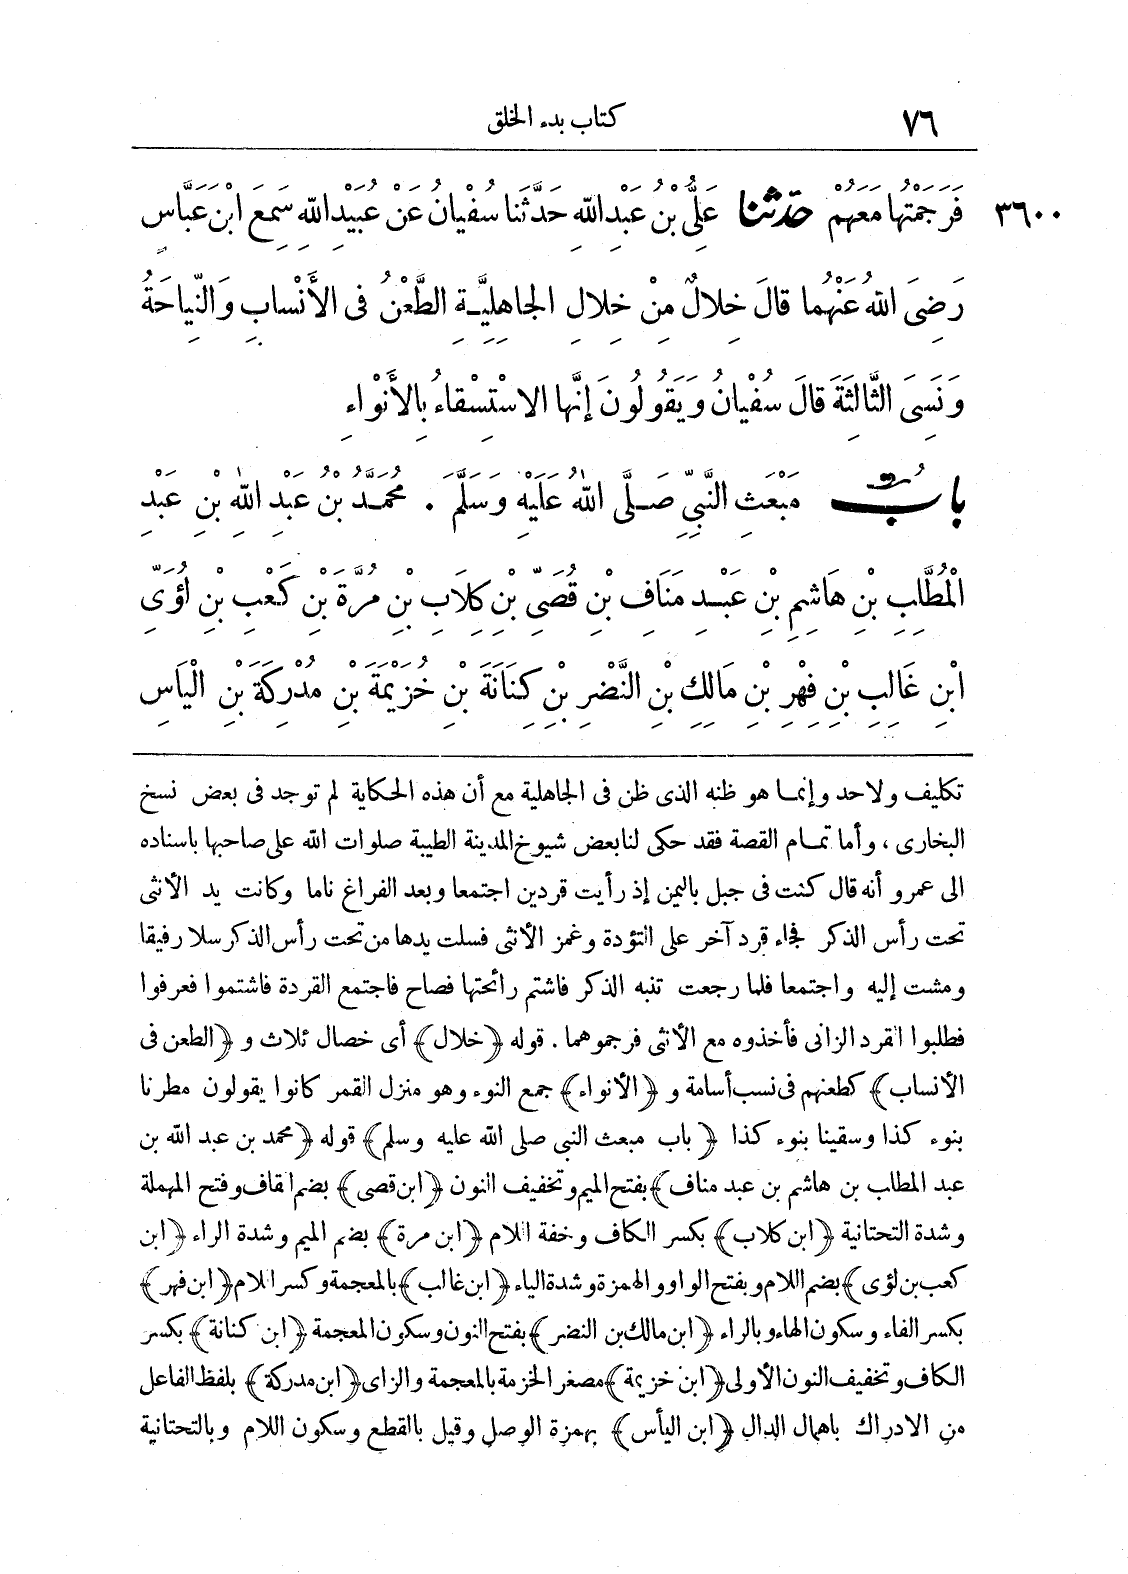 ٧٦ كتاب بدء الخلق
فَرَجَمْتُهَا مَعَهُمْ حدثنا عَلِيُّ بْنُ عَبْدِ اللهِ حَدَّثَنَا سُفْيَانُ عَنْ عُبَيْدِ اللهِ سَمِعَ ابْنَ عَبَّاسٍ ٣٦٠٠
رَضِيَ اللهُ عَنْهُمَا قَالَ خِلَالٌ مِنْ خِلَالِ الْجَاهِلِيَّةِ الطَّعْنُ فِى الْأَنْسَابِ وَالنِّيَاحَةُ
وَنَسِيَ الثَّالِثَةَ قَالَ سُفْيَانُ وَيَقُولُونَ إِنَّهَا الِاسْتِسْقَاءُ بِالْأَنْوَاءِ
بابُ مَبْعَثِ النَّبِيِّ صَلَّى اللهُ عَلَيْهِ وَسَلَّمَ . مُحَمَّدُ بْنُ عَبْدِ اللهِ بْنِ عَبْدِ
الْمُطَّلِبِ بْنِ هَاشِمِ بْنِ عَبْدِ مَنَافِ بْنِ قُصَيِّ بْنِ كِلَابِ بْنِ مُرَّةَ بْنِ كَعْبِ بْنِ لُؤَيِّ
ابْنِ غَالِبِ بْنِ فِهْرِ بْنِ مَالِكِ بْنِ النَّضْرِ بْنِ كِنَانَةَ بْنِ خُزَيْمَةَ بْنِ مُدْرِكَةَ بْنِ الْيَاسِ
تكليف ولا حد وإنما هو ظنه الذى ظن فى الجاهلية مع أن هذه الحكاية لم توجد فى بعض نسخ
البخارى ، وأما تمام القصة فقد حكى لنا بعض شيوخ المدينة الطيبة صلوات الله على صاحبها باسناده
الى عمرو أنه قال كنت فى جبل باليمن إذ رأيت قردين اجتمعا وبعد الفراغ ناما وكانت يد الأنثى
تحت رأس الذكر فجاء قرد آخر على التؤدة وغمز الأنثى فسلت يدها من تحت رأس الذكر سلا رفيقا
ومشت إليه واجتمعا فلما رجعت تنبه الذكر فاشتم رائحتها فصاح فاجتمع القردة فاشتموا فعرفوا
فطلبوا القرد الزانى فأخذوه مع الأنثى فرجموهما . قوله ﴿خلال﴾ أى خصال ثلاث و ﴿الطعن فى
الأنساب﴾ كطعنهم فى نسب أسامة و ﴿الأنواء﴾ جمع النوء وهو منزل القمر كانوا يقولون مطرنا
بنوء كذا وسقينا بنوء كذا ﴿باب مبعث النبى صلى الله عليه وسلم﴾ قوله ﴿محمد بن عبد الله بن
عبد المطلب بن هاشم بن عبد مناف﴾ بفتح الميم وتخفيف النون ﴿ابن قصى﴾ بضم القاف وفتح المهملة
وشدة التحتانية ﴿ابن كلاب﴾ بكسر الكاف وخفة اللام ﴿ابن مرة﴾ بضم الميم وشدة الراء ﴿ابن
كعب بن لؤى﴾ بضم اللام وبفتح الواو والهمزة وشدة الياء ﴿ابن غالب﴾ بالمعجمة وكسر اللام ﴿ابن فهر﴾
بكسر الفاء وسكون الهاء وبالراء ﴿ابن مالك بن النضر﴾ بفتح النون وسكون المعجمة ﴿ابن كنانة﴾ بكسر
الكاف وتخفيف النون الأولى ﴿ابن خزيمة﴾ مصغر الخزمة بالمعجمة والزاى ﴿ابن مدركة﴾ بلفظ الفاعل
من الادراك باهمال الدال ﴿ابن اليأس﴾ بهمزة الوصل وقيل بالقطع وسكون اللام وبالتحتانية